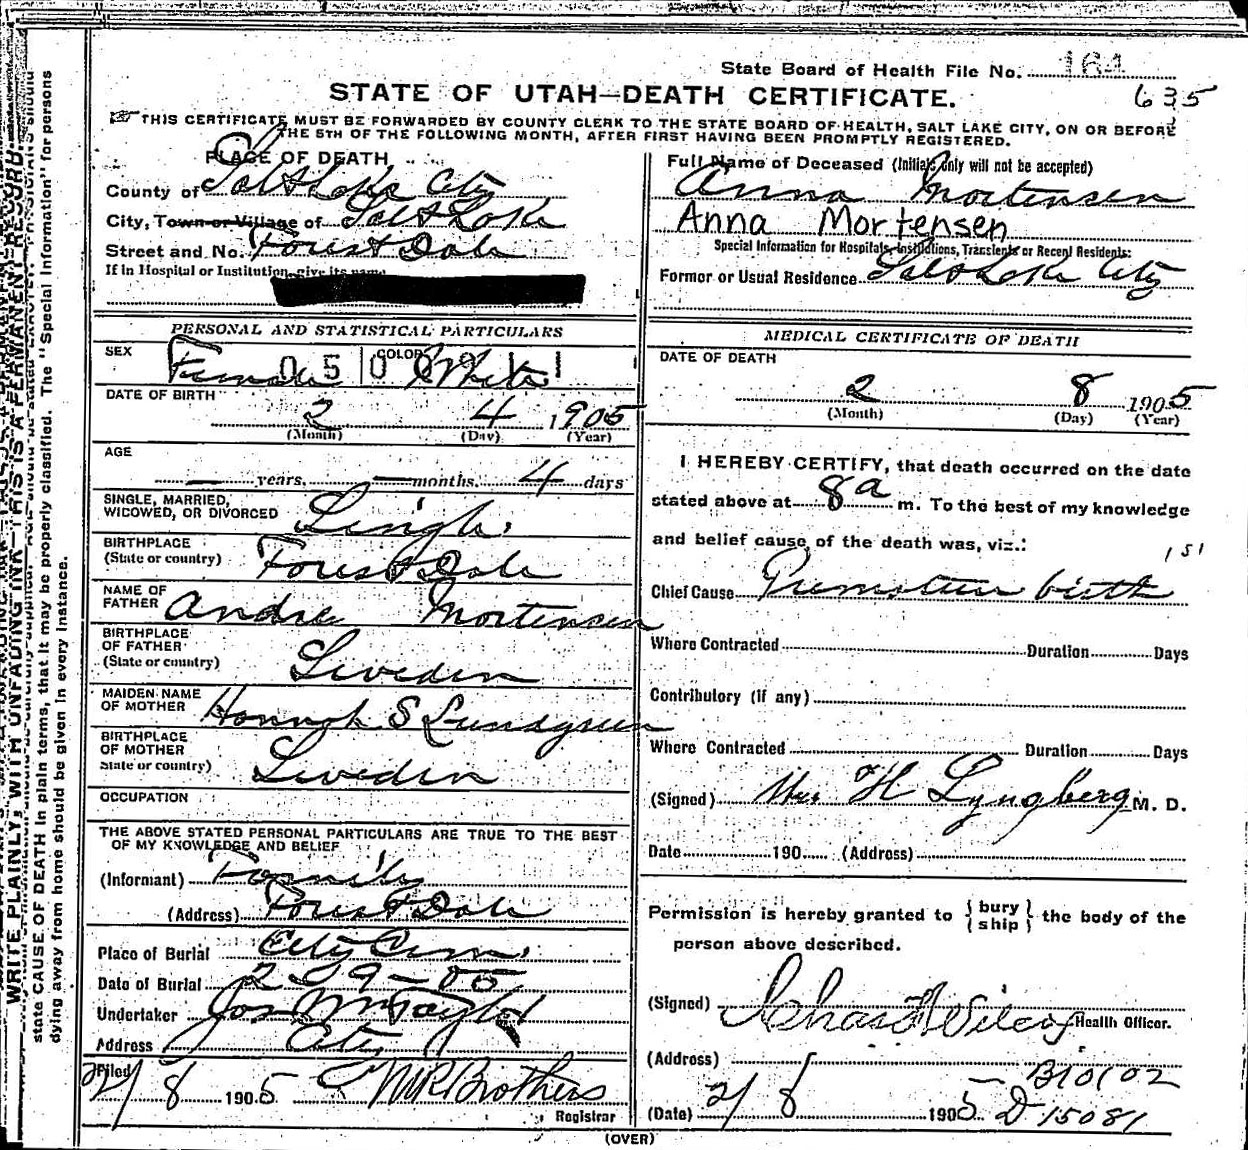 State Board of Health File No. 164
635
STATE OF UTAH—DEATH CERTIFICATE.
THIS CERTIFICATE MUST BE FORWARDED BY COUNTY CLERK TO THE STATE BOARD OF HEALTH, SALT LAKE CITY, ON OR BEFORE
THE 5TH OF THE FOLLOWING MONTH, AFTER FIRST HAVING BEEN PROMPTLY REGISTERED.
PLACE OF DEATH
County of Salt Lake City
City, Town or Village of Salt Lake
Street and No. Forest Dale
If in Hospital or Institution, give its name
Full Name of Deceased (Initials only will not be accepted)
Anna Mortensen
Anna Mortensen
Special Information for Hospitals, Institutions, Transients or Recent Residents:
Former or Usual Residence Salt Lake City
PERSONAL AND STATISTICAL PARTICULARS
SEX Female COLOR White
DATE OF BIRTH
2 4 1905
(Month) (Day) (Year)
AGE
— years, — months, 4 days
SINGLE, MARRIED,
WIDOWED, OR DIVORCED Single
BIRTHPLACE
(State or country) Forest Dale
NAME OF
FATHER Andrew Mortensen
BIRTHPLACE
OF FATHER
(State or country) Sweden
MAIDEN NAME
OF MOTHER Hannah S Lundgreen
BIRTHPLACE
OF MOTHER
State or country) Sweden
OCCUPATION
THE ABOVE STATED PERSONAL PARTICULARS ARE TRUE TO THE BEST
OF MY KNOWLEDGE AND BELIEF
(Informant) Family
(Address) Forest Dale
Place of Burial City Cem.
Date of Burial 2-9-05
Undertaker Jos Wm Taylor
Address City
Filed
2/8 1905 MR Brothers
Registrar
MEDICAL CERTIFICATE OF DEATH
DATE OF DEATH
2 8 1905
(Month) (Day) (Year)
I HEREBY CERTIFY, that death occurred on the date
stated above at 8 a m. To the best of my knowledge
and belief cause of the death was, viz.:
151
Chief Cause Premature birth
Where Contracted Duration Days
Contributory (if any)
Where Contracted Duration Days
(Signed) Mrs H Lyngberg M. D.
Date 190 (Address)
Permission is hereby granted to { bury
ship } the body of the
person above described.
(Signed) Chas F Wilcox Health Officer.
(Address)
B10102
(Date) 2/8 1905 D 15081
(OVER)
WRITE PLAINLY, WITH UNFADING INK—THIS IS A PERMANENT RECORD.
state CAUSE OF DEATH in plain terms, that it may be properly classified. The "Special Information" for persons
dying away from home should be given in every instance.